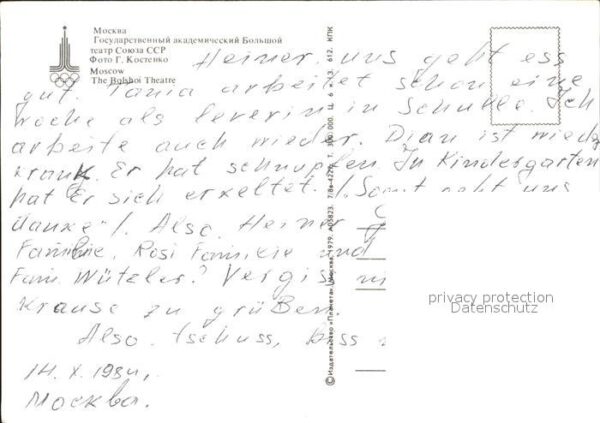 Москва
Государственный академический Большой
театр Союза ССР
Фото Г. Костенко
Moscow
The Bolshoi Theatre
Heiner, uns geht ess
gut. Tania arbeitet schon eine
woche als leverin in Schule. Ich
arbeite auch wieder. Dian ist wied
krank. Er hat schnupfen. In Kindergarten
hat Er sich erkeltet. /. Somt geht uns
danke"/. Also. Heiner
Familie. Rosi Familie und
Fam Wützler? Vergis
Krause zu grüßen.
Also. tschuss, biss
14. X. 1984,
Москва.
© Издательство «Планета». Москва. 1979. А05823. 7/8е-4229. Т. 300 000. Ц. 6 к. З. 612. КПК
privacy protection
Datenschutz